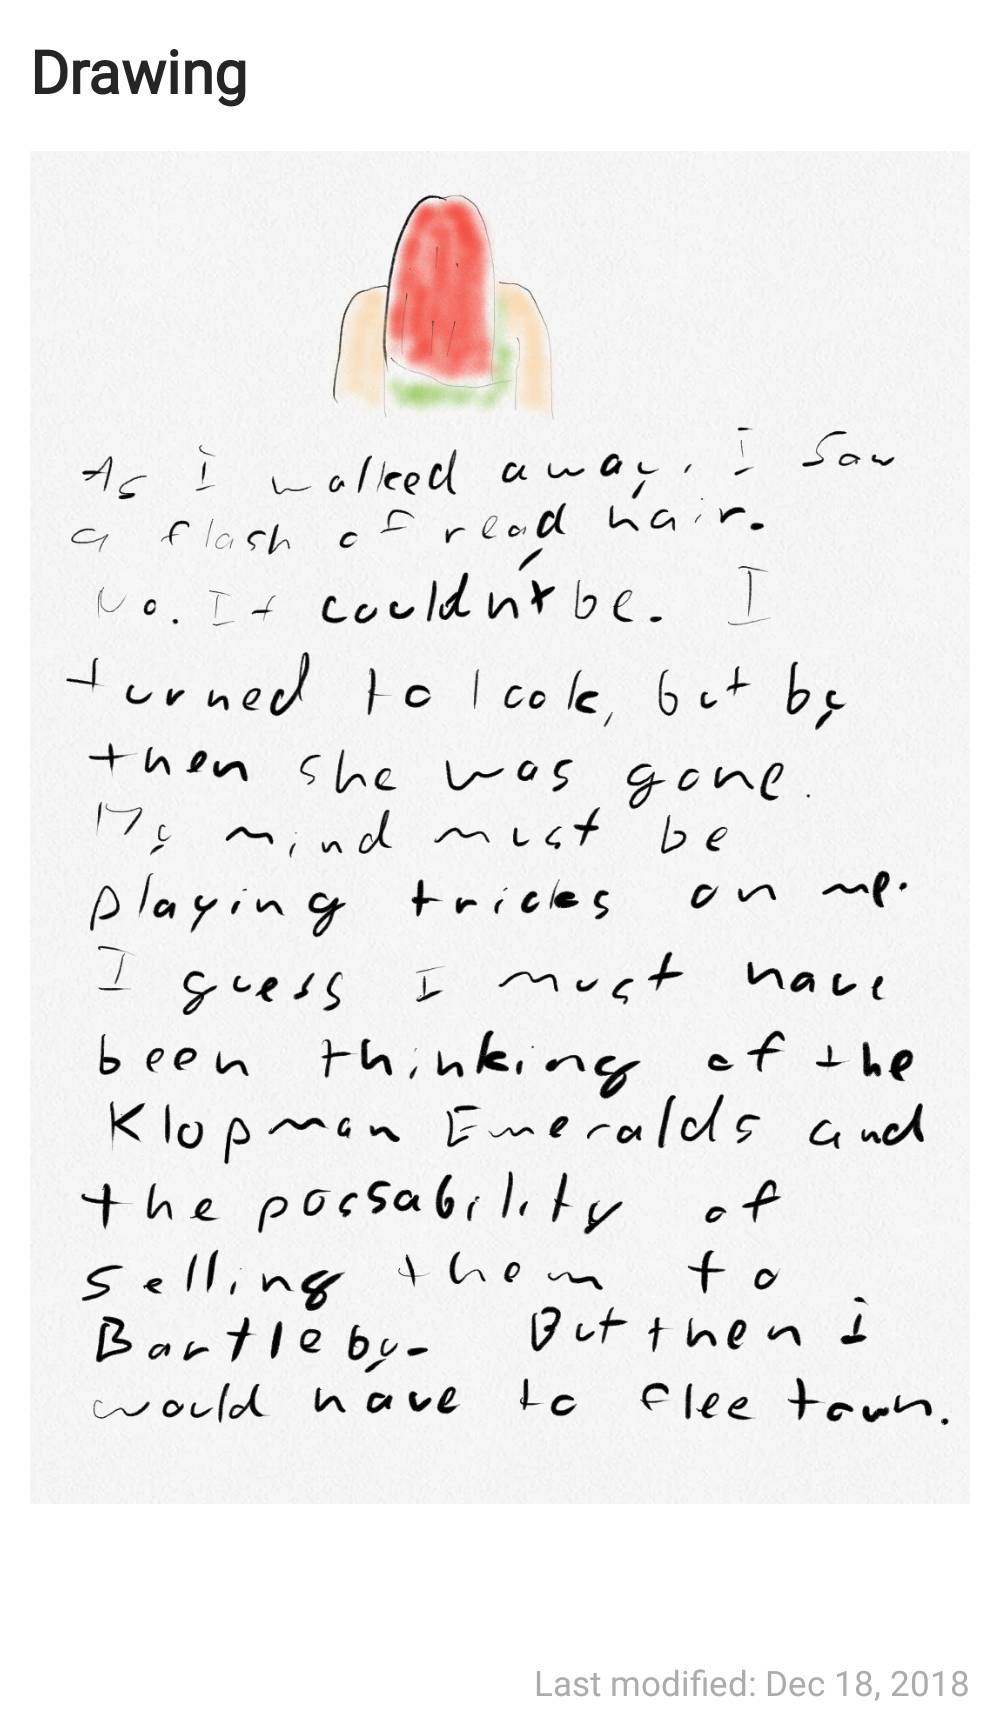 Drawing
As I walked away, I saw
a flash of read hair.
No. It couldn't be. I
turned to look, but by
then she was gone.
My mind must be
playing tricks on me.
I guess I must have
been thinking of the
Klopman Emeralds and
the possability of
selling them to
Bartleby. But then I
would have to flee town.
Last modified: Dec 18, 2018